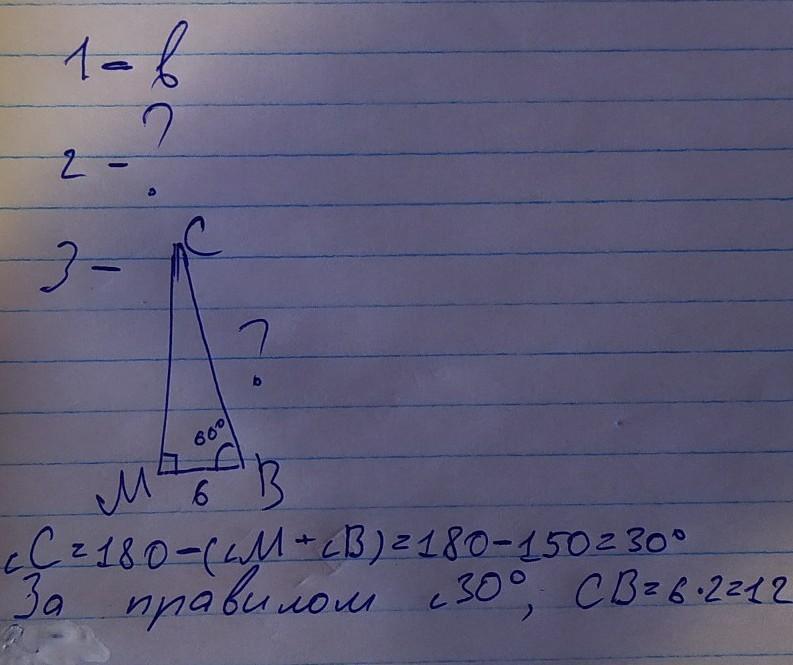 1 = в
2 - ?
3 -
C
?
60°
M 6 B
∠C = 180 - (∠M + ∠B) = 180 - 150 = 30°
За правилом ∠30°, CB = 6·2 = 12